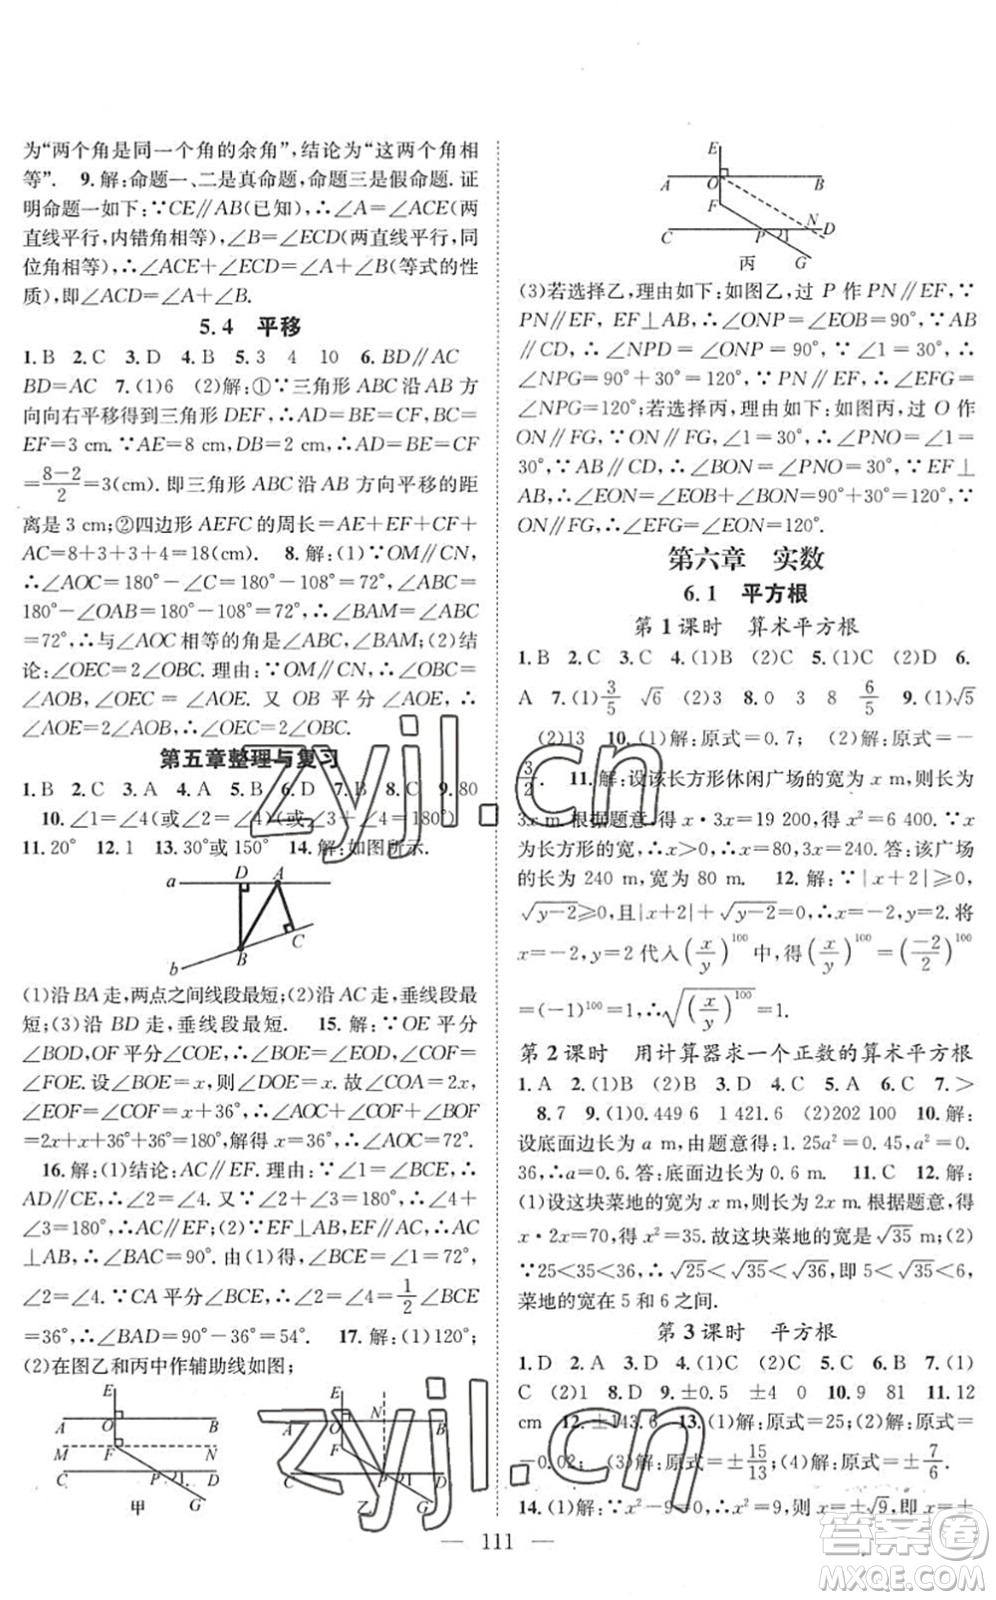 为“两个角是同一个角的余角”,结论为“这两个角相
等”. 9.解:命题一、二是真命题,命题三是假命题.证
明命题一如下:∵CE∥AB(已知),∴∠A=∠ACE(两
直线平行,内错角相等),∠B=∠ECD(两直线平行,同
位角相等),∴∠ACE+∠ECD=∠A+∠B(等式的性
质),即∠ACD=∠A+∠B.
5.4 平移
1.B 2.C 3.D 4.B 5.3 4 10 6.BD∥AC
BD=AC 7.(1)6 (2)解:①∵三角形 ABC 沿 AB 方
向向右平移得到三角形 DEF,∴AD=BE=CF,BC=
EF=3 cm.∵AE=8 cm,DB=2 cm,∴AD=BE=CF
=(8-2)/2=3(cm).即三角形 ABC 沿 AB 方向平移的距
离是 3 cm;②四边形 AEFC 的周长=AE+EF+CF+
AC=8+3+3+4=18(cm). 8.解:(1)∵OM∥CN,
∴∠AOC=180°-∠C=180°-108°=72°,∠OAB=
180°-∠OAB=180°-108°=72°,∴∠BAM=∠COA
=72°,∴与∠AOC 相等的角是∠ABC,∠BAM;(2)结
论:∠OEC=2∠OBC.理由:∵OM∥CN,∴∠OBC=
∠AOB,∠OEC=∠AOE.又 OB 平分∠AOE,∴
∠AOE=2∠AOB,∴∠OEC=2∠OBC.
第五章整理与复习
1.B 2.C 3.A 4.A 5.B 6.D 7.B 8.C 9.80
10.∠1=∠4(或∠2=∠4)(或∠3+∠4=180°)
11.20° 12.1 13.30°或 150° 14.解:如图所示.
a D A
B C
b
(1)沿 BA 走,两点之间线段最短;(2)沿 AC 走,垂线段最
短;(3)沿 BD 走,垂线段最短. 15.解:∵OE 平分
∠BOD,OF 平分∠COE,∴∠BOE=∠DOE,∠COF=
∠FOE.设∠BOE=x,则∠DOE=x.故∠COA=2x,
∠EOF=∠COF=x+36°,∴∠AOC+∠COF+∠BOF
=2x+x+36°+36°=180°,解得 x=36°,∴∠AOC=72°.
16.解:(1)结论:AC∥EF.理由:∵∠1=∠BCE,∴
AD∥CE,∴∠2=∠4.又∵∠2+∠3=180°,∴∠4+
∠3=180°,∴AC∥EF;(2)∵EF⊥AB,AC∥EF,∴AC
⊥AB,∴∠BAC=90°.由(1)得,∠BCE=∠1=72°,
∠2=∠4.∵CA 平分∠BCE,∴∠2=∠4=1/2∠BCE=
36°,∴∠BAD=90°-36°=54°. 17.解:(1)120°;
(2)在图乙和丙中作辅助线如图;
E
A O B
M F N
C P D
G
甲
E N
A O B
F
C P D
G
乙
E
A O B
F
N
C P D
G
丙
(3)若选择乙,理由如下:如图乙,过 P 作 PN∥EF,∵
PN∥EF,EF⊥AB,∴∠ONP=∠EOB=90°,∵
∠NPD=∠ONP=90°,∵∠1=30°,∴
∠NPG=90°+30°=120°,∵PN∥EF,∴∠EFG=
∠NPG=120°;若选择丙,理由如下:如图丙,过 O 作
ON∥FG,∵ON∥FG,∠1=30°,∴∠PNO=∠1=
30°,∵AB∥CD,∴∠BON=∠PNO=30°,∵EF⊥
AB,∴∠EOB=90°,∴∠EON=∠EOB+∠BON=90°+30°=120°,∵
ON∥FG,∴∠EFG=∠EON=120°.
第六章 实数
6.1 平方根
第 1 课时 算术平方根
1.B 2.C 3.C 4.(1)B (2)C 5.(1)C (2)D 6.
A 7.(1)3/5 √6 (2)3 8.0 3 8 6/5 9.(1)√5
(2)13 10.(1)解:原式=0.7; (2)解:原式=-
3/2. 11.解:设该长方形休闲广场的宽为 x m,则长为
3x m.根据题意,得 x·3x=19 200,得 x²=6 400.∵x
为长方形的宽,∴x>0,∴x=80,3x=240.答:该广场
的长为 240 m,宽为 80 m. 12.解:∵|x+2|≥0,
√(y-2)≥0,且|x+2|+√(y-2)=0,∴x=-2,y=2.将
x=-2,y=2 代入(x/y)¹⁰⁰中,得(x/y)¹⁰⁰=(-2/2)¹⁰⁰
=(-1)¹⁰⁰=1,∴√((x/y)¹⁰⁰)=√1=1.
第 2 课时 用计算器求一个正数的算术平方根
1.A 2.(1)B (2)B 3.D 4.D 5.C 6.C 7.>
8.7 9.(1)0.449 6 1 421.6 (2)202 100 10.解:
设底面边长为 a m,由题意得:1.25a²=0.45,a²=0.
36,∴a=0.6.答:底面边长为 0.6 m. 11.C 12.解:
(1)设这块菜地的宽为 x m,则长为 2x m.根据题意,得
x·2x=70,得 x²=35.故这块菜地的宽为√35 m;(2)
∵25<35<36,∴√25<√35<√36,即 5<√35<6,
菜地的宽在 5 和 6 之间.
第 3 课时 平方根
1.D 2.A 3.D 4.(1)B (2)C 5.C 6.B 7.(1)
C (2)1 8.D 9.±0.5 ±4 0 10.9 81 11.12
cm 12.±143.6 13.(1)解:原式=25;(2)解:原式=
-0.02; (3)解:原式=±15/13;(4)解:原式=±7/6.
14.(1)解:∵x²-9=0,∴x²=9,则 x=±√9,即 x=±
111
zyjl.cn
zyjl.cn
答案圈
MXQE.COM